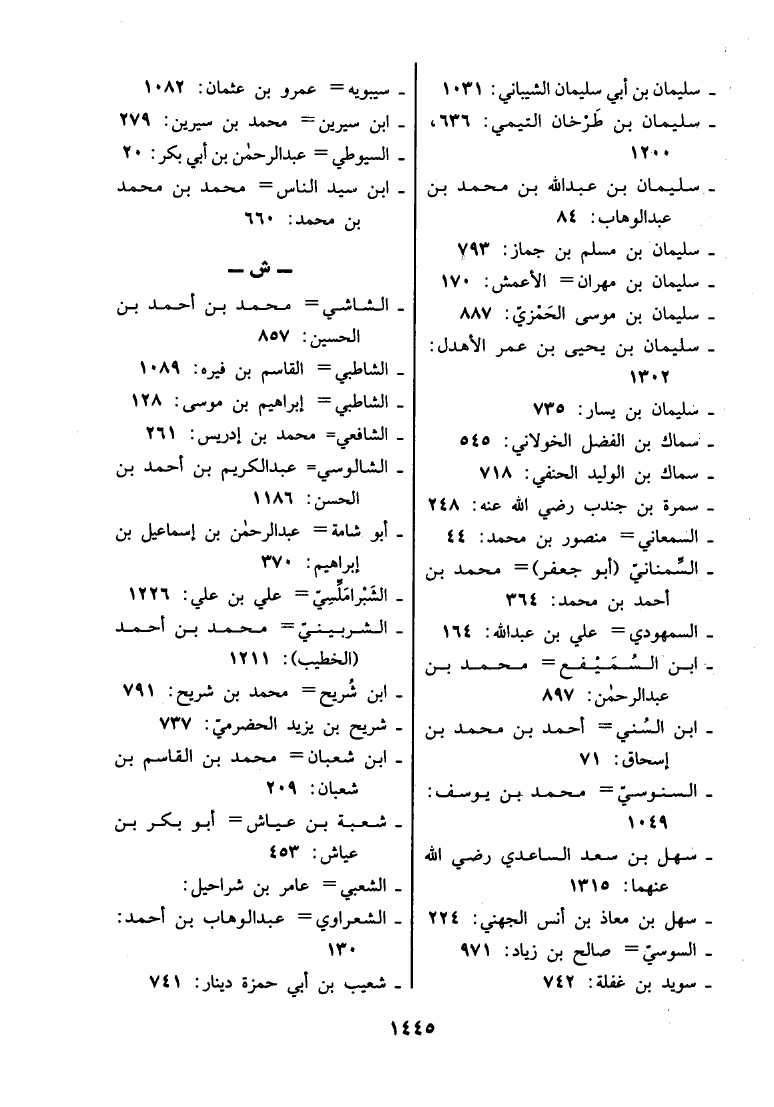 - سليمان بن أبي سليمان الشيباني: ١٠٣١
- سليمان بن طَرْخان التيمي: ٦٣٦،
١٢٠٠
- سليمان بن عبدالله بن محمد بن
عبدالوهاب: ٨٤
- سليمان بن مسلم بن جماز: ٧٩٣
- سليمان بن مهران= الأعمش: ١٧٠
- سليمان بن موسى الحَمْزيّ: ٨٨٧
- سليمان بن يحيى بن عمر الأهدل:
١٣٠٢
- سليمان بن يسار: ٧٣٥
- سماك بن الفضل الخولاني: ٥٤٥
- سماك بن الوليد الحنفي: ٧١٨
- سمرة بن جندب رضي الله عنه: ٢٤٨
- السمعاني= منصور بن محمد: ٤٤
- السِّمنانيّ (أبو جعفر)= محمد بن
أحمد بن محمد: ٣٦٤
- السمهودي= علي بن عبدالله: ١٦٤
- ابن السُّمَيْفَع= محمد بن
عبدالرحمٰن: ٨٩٧
- ابن السُّني= أحمد بن محمد بن
إسحاق: ٧١
- السنوسيّ= محمد بن يوسف:
١٠٤٩
- سهل بن سعد الساعدي رضي الله
عنهما: ١٣١٥
- سهل بن معاذ بن أنس الجهني: ٢٢٤
- السوسيّ= صالح بن زياد: ٩٧١
- سويد بن غفلة: ٧٤٢
- سيبويه= عمرو بن عثمان: ١٠٨٢
- ابن سيرين= محمد بن سيرين: ٢٧٩
- السيوطي= عبدالرحمٰن بن أبي بكر: ٢٠
- ابن سيد الناس= محمد بن محمد
بن محمد: ٦٦٠
- ش -
- الشاشي= محمد بن أحمد بن
الحسين: ٨٥٧
- الشاطبي= القاسم بن فيره: ١٠٨٩
- الشاطبي= إبراهيم بن موسى: ١٢٨
- الشافعي= محمد بن إدريس: ٢٦١
- الشالوسي= عبدالكريم بن أحمد بن
الحسن: ١١٨٦
- أبو شامة= عبدالرحمٰن بن إسماعيل بن
إبراهيم: ٣٧٠
- الشَبْرامَلِّسِيّ= علي بن علي: ١٢٢٦
- الشربينيّ= محمد بن أحمد
(الخطيب): ١٢١١
- ابن شُريح= محمد بن شريح: ٧٩١
- شريح بن يزيد الحضرميّ: ٧٣٧
- ابن شعبان= محمد بن القاسم بن
شعبان: ٢٠٩
- شعبة بن عياش= أبو بكر بن
عياش: ٤٥٣
- الشعبي= عامر بن شراحيل:
- الشعراوي= عبدالوهاب بن أحمد:
١٣٠
- شعيب بن أبي حمزة دينار: ٧٤١
١٤٤٥